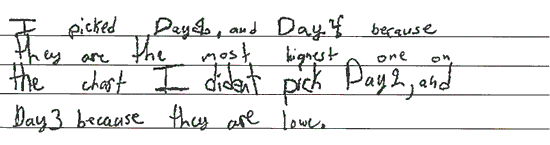 I picked Day1, and Day4 because
they are the most highest one on
the chart I dident pick Day2, and
Day3 because they are lowe.